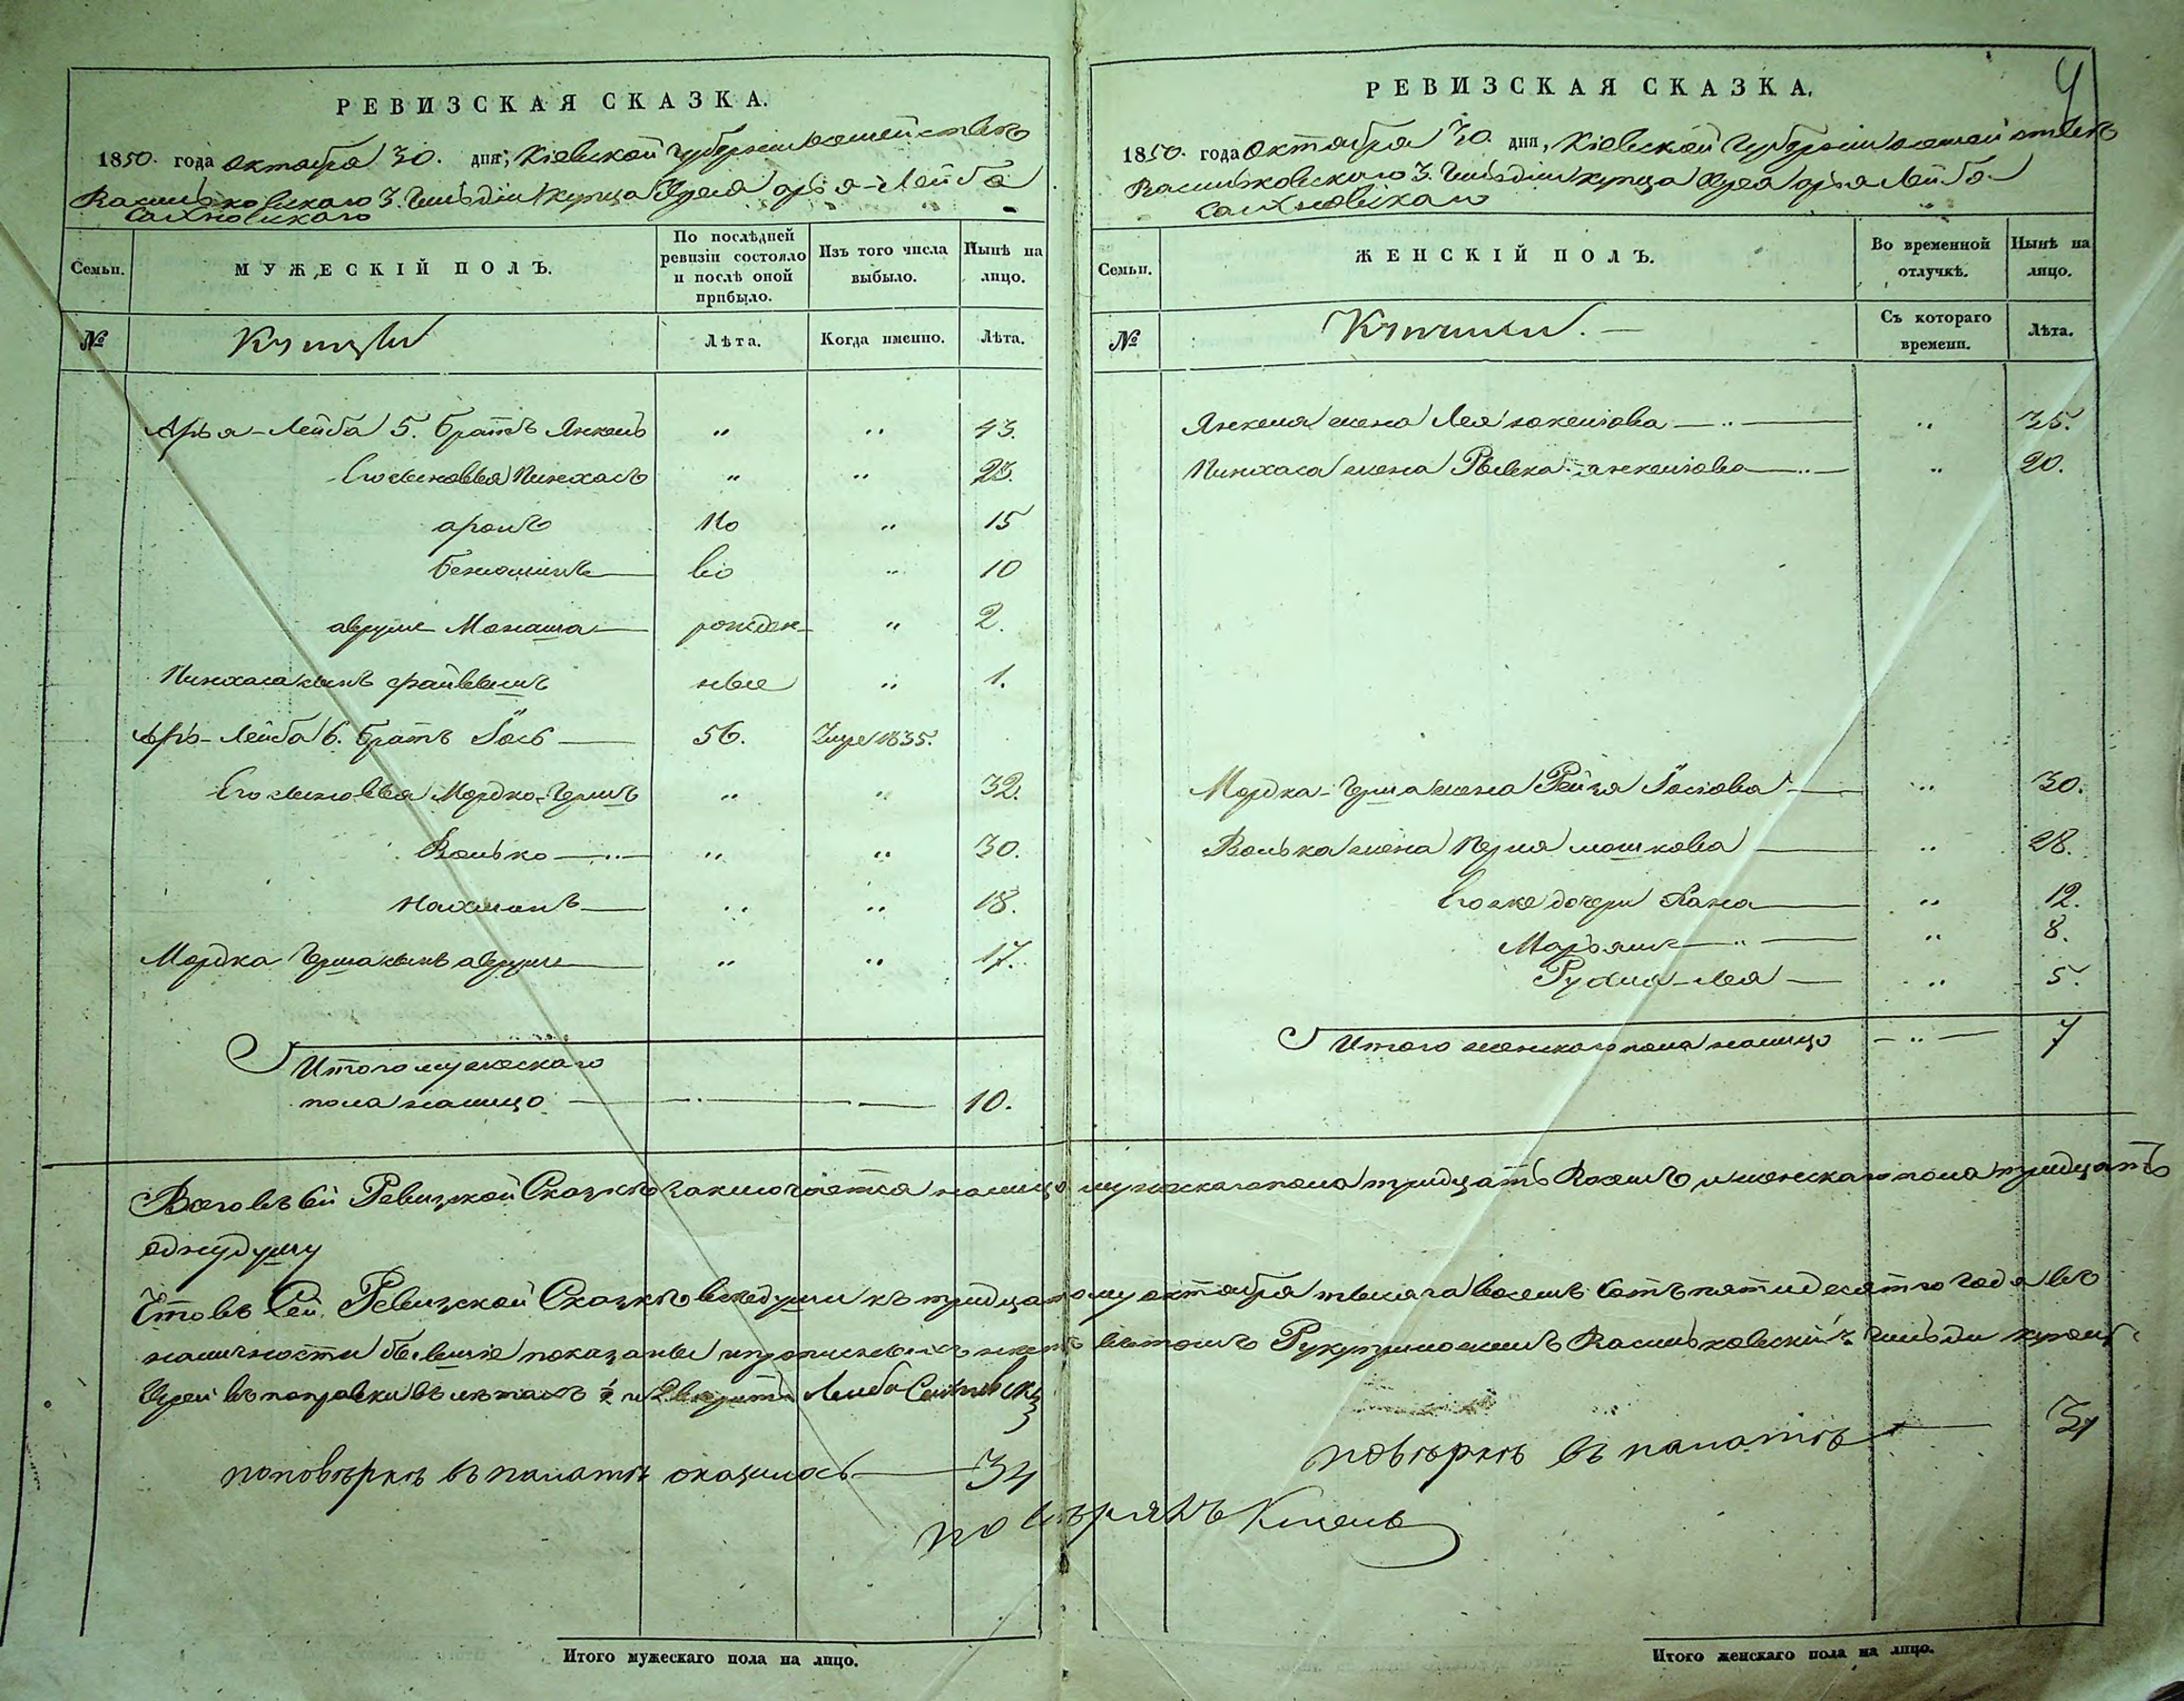 РЕВИЗСКАЯ СКАЗКА.
1850. года Октября 30. дня, Кіевской Губерніи
Васильковскаго 3. Гильдіи Купца Арья-Лейба
Сахновскаго
Семьи. МУЖЕСКІЙ ПОЛЪ. По послѣдней ревизіи состояло и послѣ оной прибыло. Изъ того числа выбыло. Нынѣ на лицо.
№ Купцы Лѣта. Когда именно. Лѣта.
Арья-Лейба 5. братъ Янкель " " 43.
Его сыновья Пинхасъ " " 23.
аронъ Но " 15
Бенюминъ во " 10
аврумъ Монаша рожден- " 2.
Пинхаса сынъ файвышъ ные " 1.
Арь-Лейба 6. братъ Іось 56. Умре 1835.
Его сыновья Мордко-Гершъ " " 32.
Волько " " 30.
Нахманъ " " 18.
Мордка Герша сынъ аврумъ " " 17.
Итого мужескаго
пола налицо 10.
РЕВИЗСКАЯ СКАЗКА.
1850. года Октября 30. дня, Кіевской Губерніи
Васильковскаго 3. Гильдіи купца арья Лейба
Сахновскаго
Семьи. ЖЕНСКІЙ ПОЛЪ. Во временной отлучкѣ. Нынѣ на лицо.
№ Купчихи. Съ котораго времени. Лѣта.
Янкеля жена Лея " 35.
Пинхаса жена Рывка янкелгова " 20.
Мордка-Герша жена Рейзя Іосіова " 30.
Волька жена Перля мошкова " 28.
Его же дочери Хана " 12.
Марьямъ " 8.
Рухля-Лея " 5.
Итого женскаго пола налицо " 7
Всего въ сей Ревизской Сказкѣ заключается налицо мужескаго пола тридцать Восемъ и женскаго пола тридцать
одну душу
Что въ Сей Ревизской Сказкѣ все души къ тридцатому октября тысяча восемъ сотъ пятидесятого года въ
наличности бывшіе показаны и прописныхъ нетъ въ томъ Руку приложилъ Васильковскій 3 гильдіи купецъ
въ поправки въ летахъ Лейба Сахновскій
поповѣркѣ въ палатѣ оказалось 34
повѣркѣ въ палатѣ 31
повѣрялъ
Итого мужескаго пола на лицо.
Итого женскаго пола на лицо.